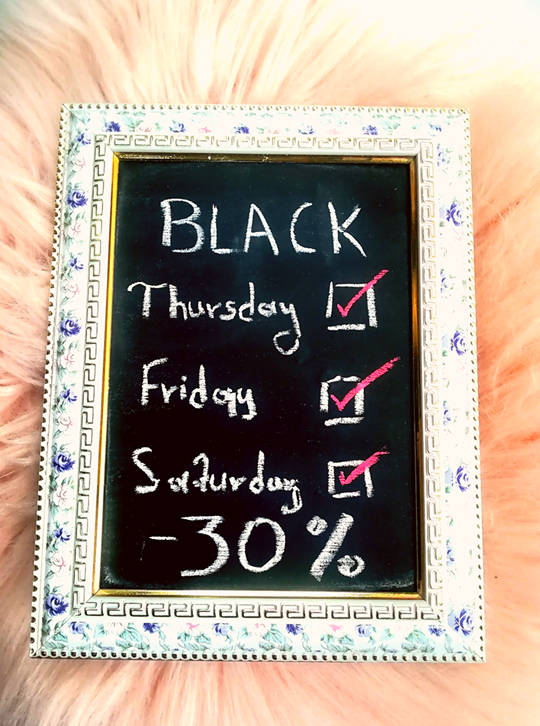 BLACK
Thursday
Friday
Saturday
-30%